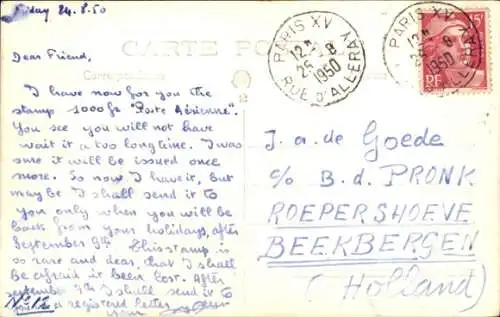 Friday 24.8.50
CARTE PO
Correspondance
Dear Friend,
I have now for you the
stamp 1000fr "Poste Aérienne".
You see you will not have
wait it a too long time. I was
sure it will be issued once
more. So now I have it, but
maybe I shall send it to
you only when you will be
back from your holidays, after
September 9th. This stamp is
so rare and dear, that I shall
be afraid it been lost. After
september 9th I shall send it to
a registered letter
your
No 12
PARIS XV
12H
25-8
1950
RUE D'ALLERAY
PARIS XV
12H
8
1950
RF
15F
J. a. de Goede
c/o B. d. PRONK
ROEPERSHOEVE
BEEKBERGEN
(Holland)